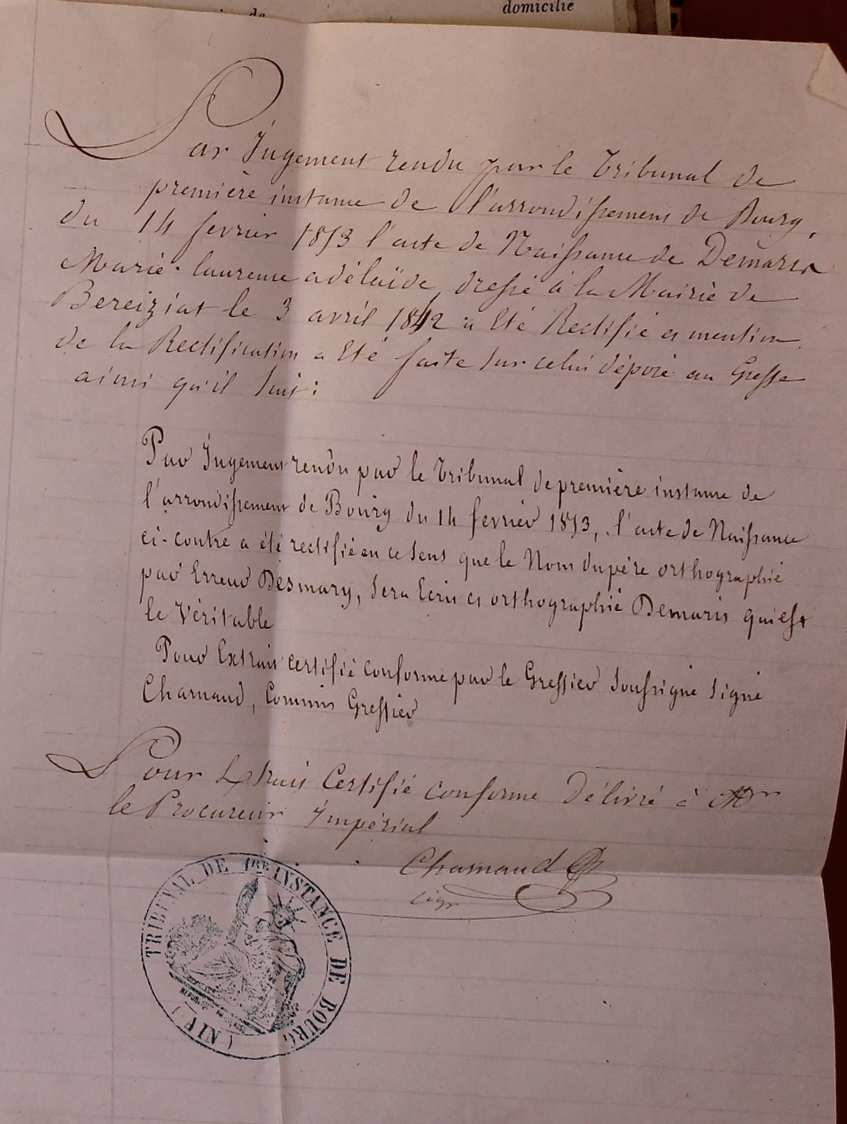 domicilié
de
Par Jugement rendu par le Tribunal de
première instance de l'arrondissement de Bourg,
du 14 fevrier 1873 l'acte de Naissance de Demaris
Marie-laurence adélaïde, dressé à la Mairie de
Bereiziat le 3 avril 1842 a été Rectifié et mention
de la Rectification a été faite sur celui déposé au Greffe
ainsi qu'il suit :
Par Jugement rendu par le Tribunal de première instance de
l'arrondissement de Bourg du 14 fevrier 1873, l'acte de Naissance
ci-contre a été rectifié en ce sens que le Nom du père orthographié
par Erreur Desmary, sera Ecrit et orthographié Demaris qui est
le Véritable
Pour Extrait certifié conforme par le Greffier Soussigné Signé
Charnaud, Commis Greffier
Pour Extrait Certifié conforme Délivré à Mr
le Procureur Impérial
Charnaud
TRIBUNAL DE 1RE INSTANCE DE BOURG
(AIN)